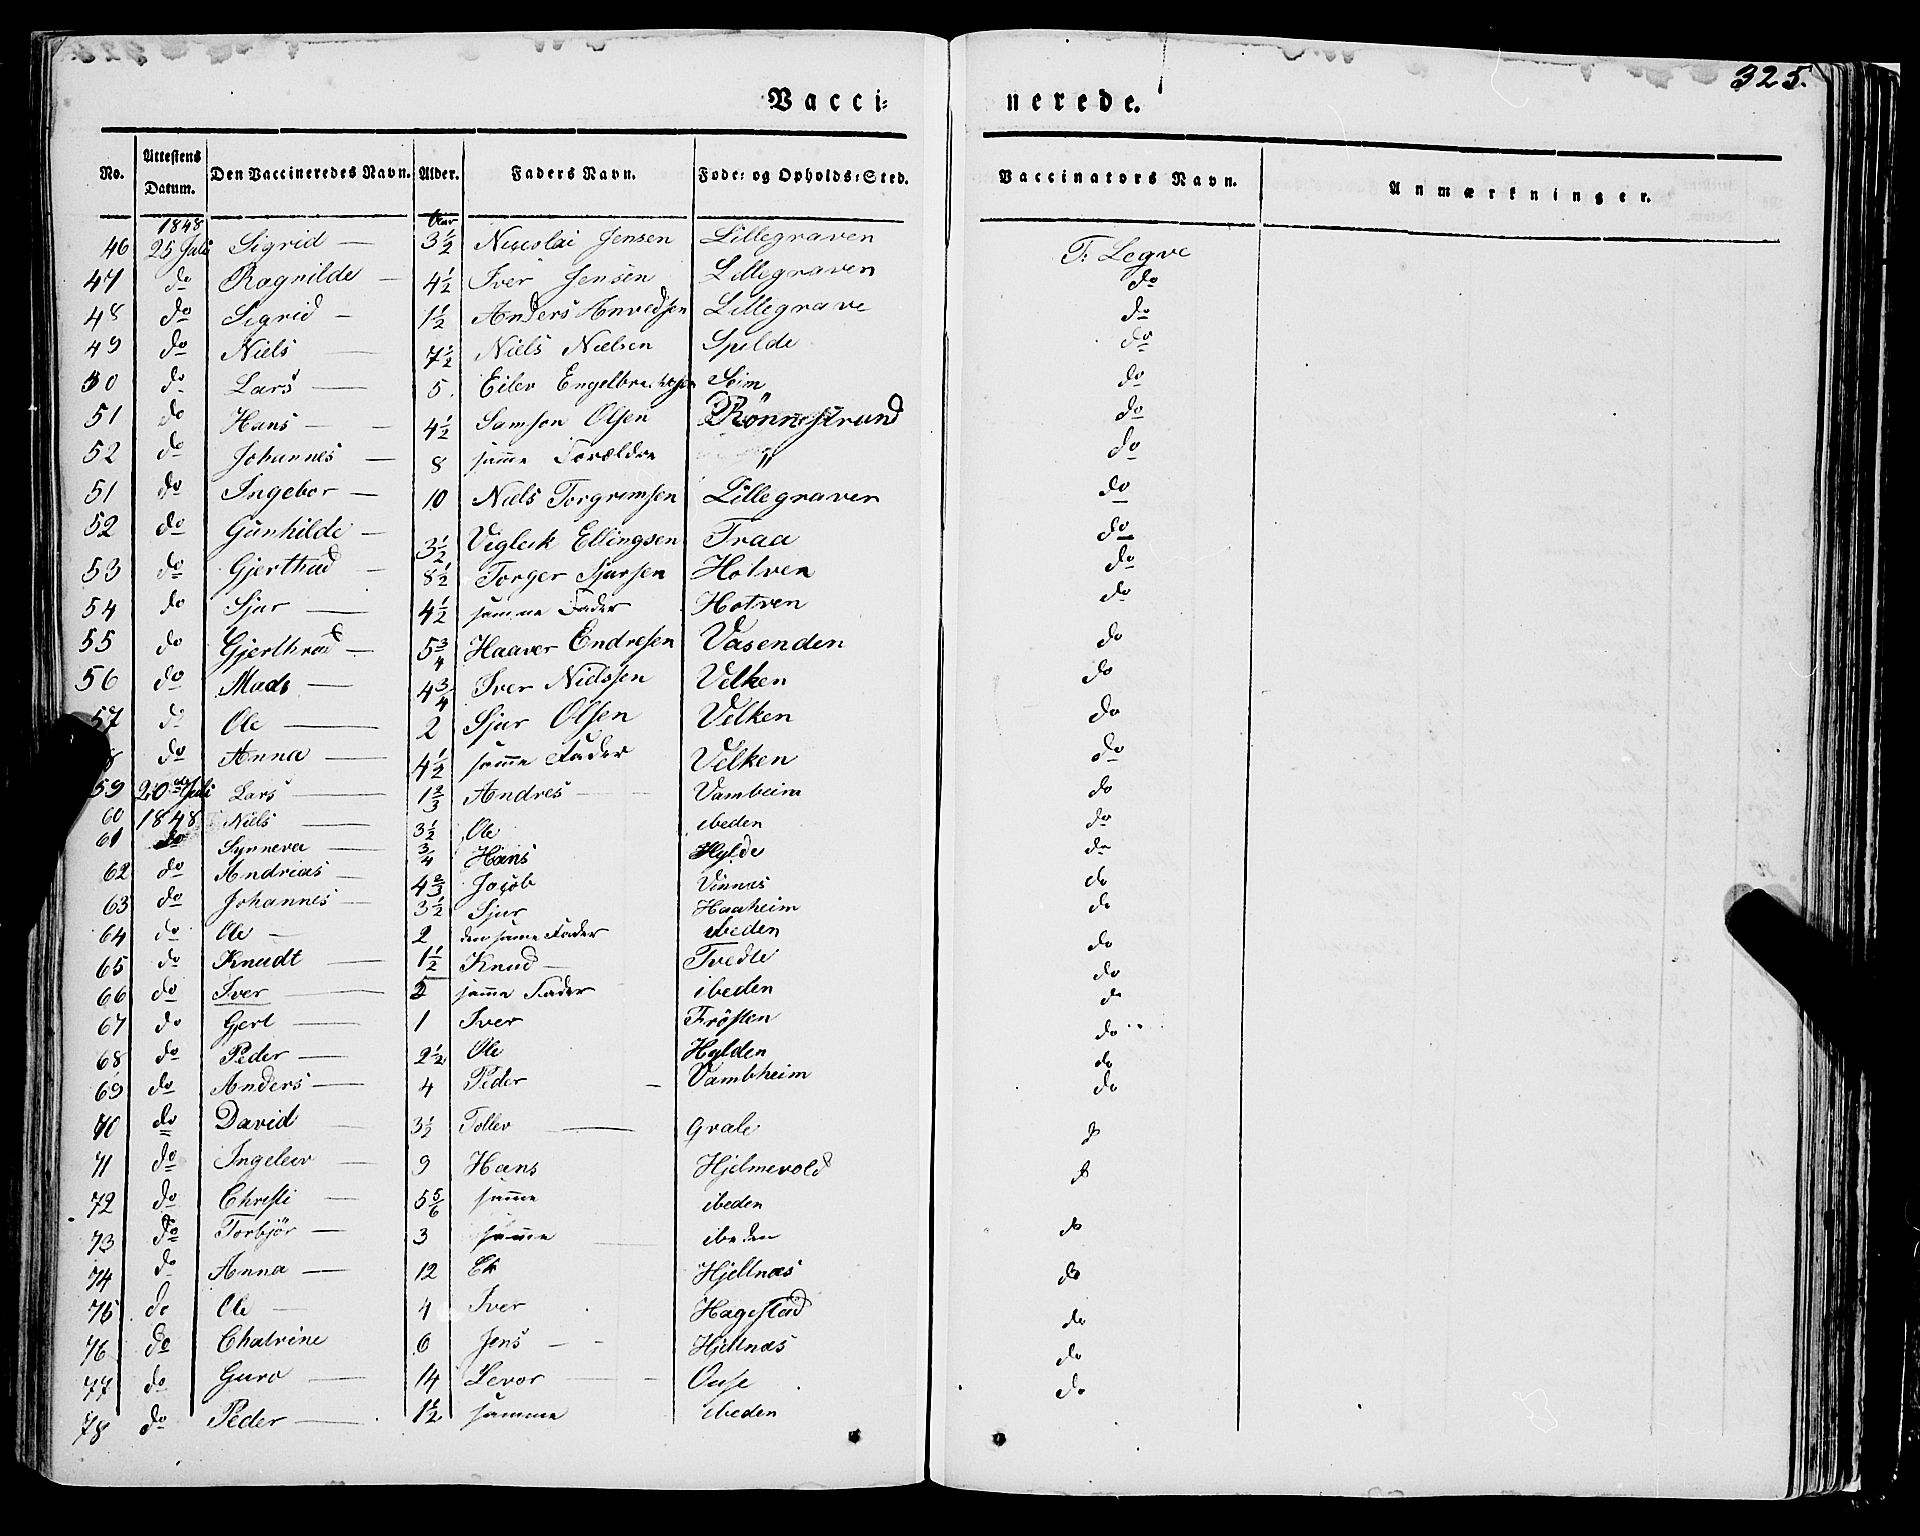 325.
Vacci= nerede.
No. Attestens Datum. Den Vaccineredes Navn. Alder. Faders Navn. Føde= og Opholds=Sted. Vaccinators Navn. Anmærkninger.
1848 Aar
46 25 Juli Sigrid — 3½ Nicolai Jensen Lillegraven T: Legve
47 do Ragnilde — 4½ Iver Jensen Lillegraven do
48 do Sigrid — 1½ Anders Anvedsen Lillegrave do
49 do Niels — 7½ Niels Nielsen Spilde do
50 do Lars — 5. Eilev Engelbrechtsen Seim do
51 do Hans — 4½ Samson Olsen Rönnestrand do
52 do Johannes — 8 samme Forældre " do
51 do Ingebor — 10 Niels Torgrimsen Lillegraven do
52 do Gunhilde — 3½ Vigleik Ellingsen Traa do
53 do Gjerthud — 8½ Torger Sjursen Hotven do
54 do Sjur — 4½ samme Fader Hotven do
55 do Gjerthrud — 5¾ Haaver Endresen Vasenden do
56 do Mads — 4¾ Iver Nielssen Velken do
57 do Ole — 2 Sjur Olsen Velken do
do Anna — 4½ samme Fader Velken do
59 20de Juli Lars — 1⅔ Andres — Vambeim do
60 1848 Niels — 3½ Ole ibeden do
61 do Synneva — ¾ Hans Hylde do
62 do Andrias — 4⅔ Jacob Vinnas do
63 do Johannes — 3½ Sjur Haaheim do
64 do Ole — 2 den samme Fader ibeden do
65 do Knudt — 1½ Knud — Tvedte do
66 do Iver — 2 samme Fader ibeden do
67 do Gert — 1 Iver Frösten do
68 do Peder — 2½ Ole Hylden do
69 do Anders — 4 Peder — Vambheim do
70 do David — 3½ Tollev — Grale do
71 do Ingeleiv — 9 Hans Hjelmevold do
72 do Christi — 5⅚ samme ibeden
73 do Torbjör — 3 samme — ibeden do
74 do Anna — 12 Hjeltnæs do
75 do Ole — 4 Iver Hagestad do
76 do Chatrine 6 Jens — Hjeltnæs do
77 do Guro — 14 Levor — Ouse do
78 do Peder — 1½ samme ibeden